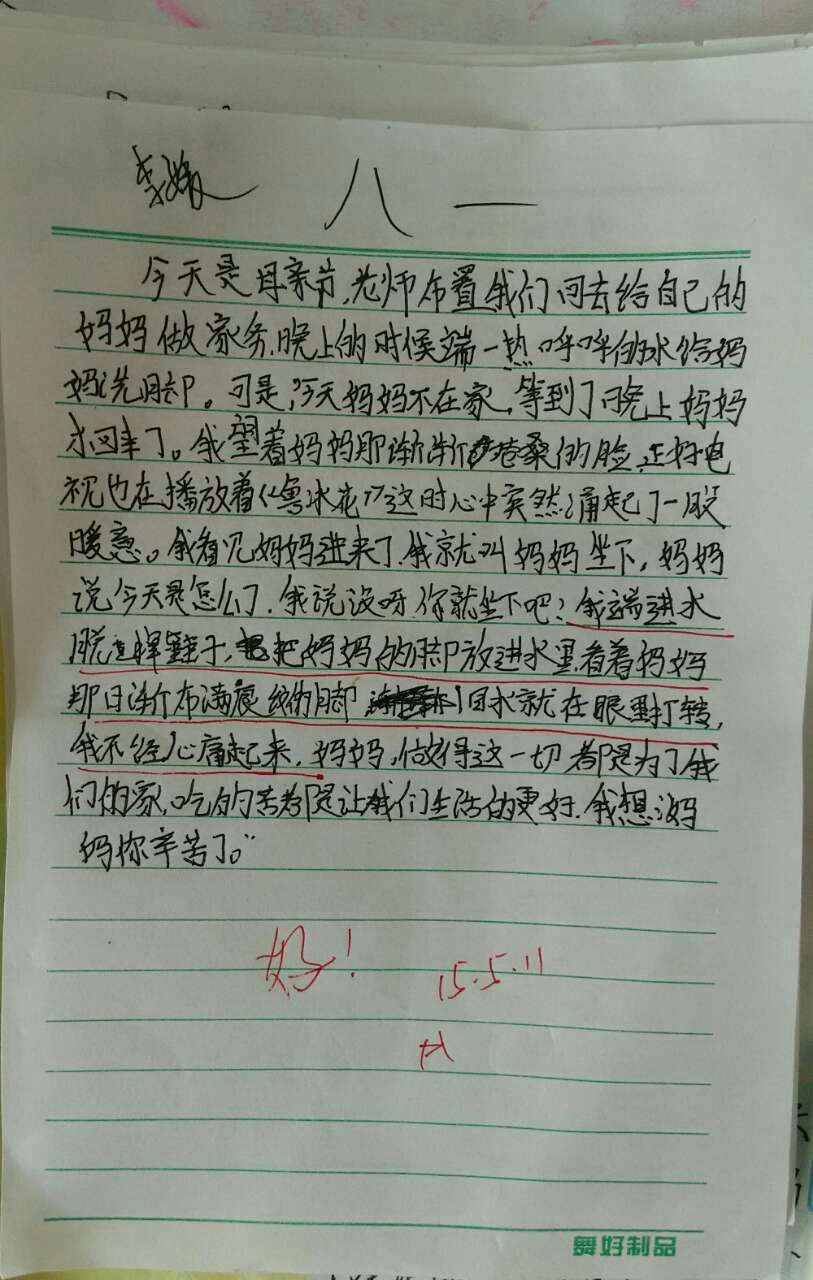 李媛 八一
今天是母亲节,老师布置我们回去给自己的
妈妈做家务,晚上的时候端一热呼呼的水给妈
妈洗脚。可是,今天妈妈不在家,等到了晚上妈妈
才回来了。我望着妈妈那渐渐沧桑的脸,正好电
视也在播放着《鲁冰花》这时心中突然涌起了一股
暖意。我看见妈妈进来了,我就叫妈妈坐下,妈妈
说今天是怎么了,我说没呀,你就坐下吧?我端进水
脱掉鞋子,把妈妈的脚放进水里,看着妈妈
那日渐布满痕纹的脚 泪水就在眼里打转,
我不经心痛起来,妈妈,做得这一切都是为了我
们的家,吃的苦都是让我们生活的更好,我想说妈
妈你辛苦了。”
好! 15.5.11
舞好制品